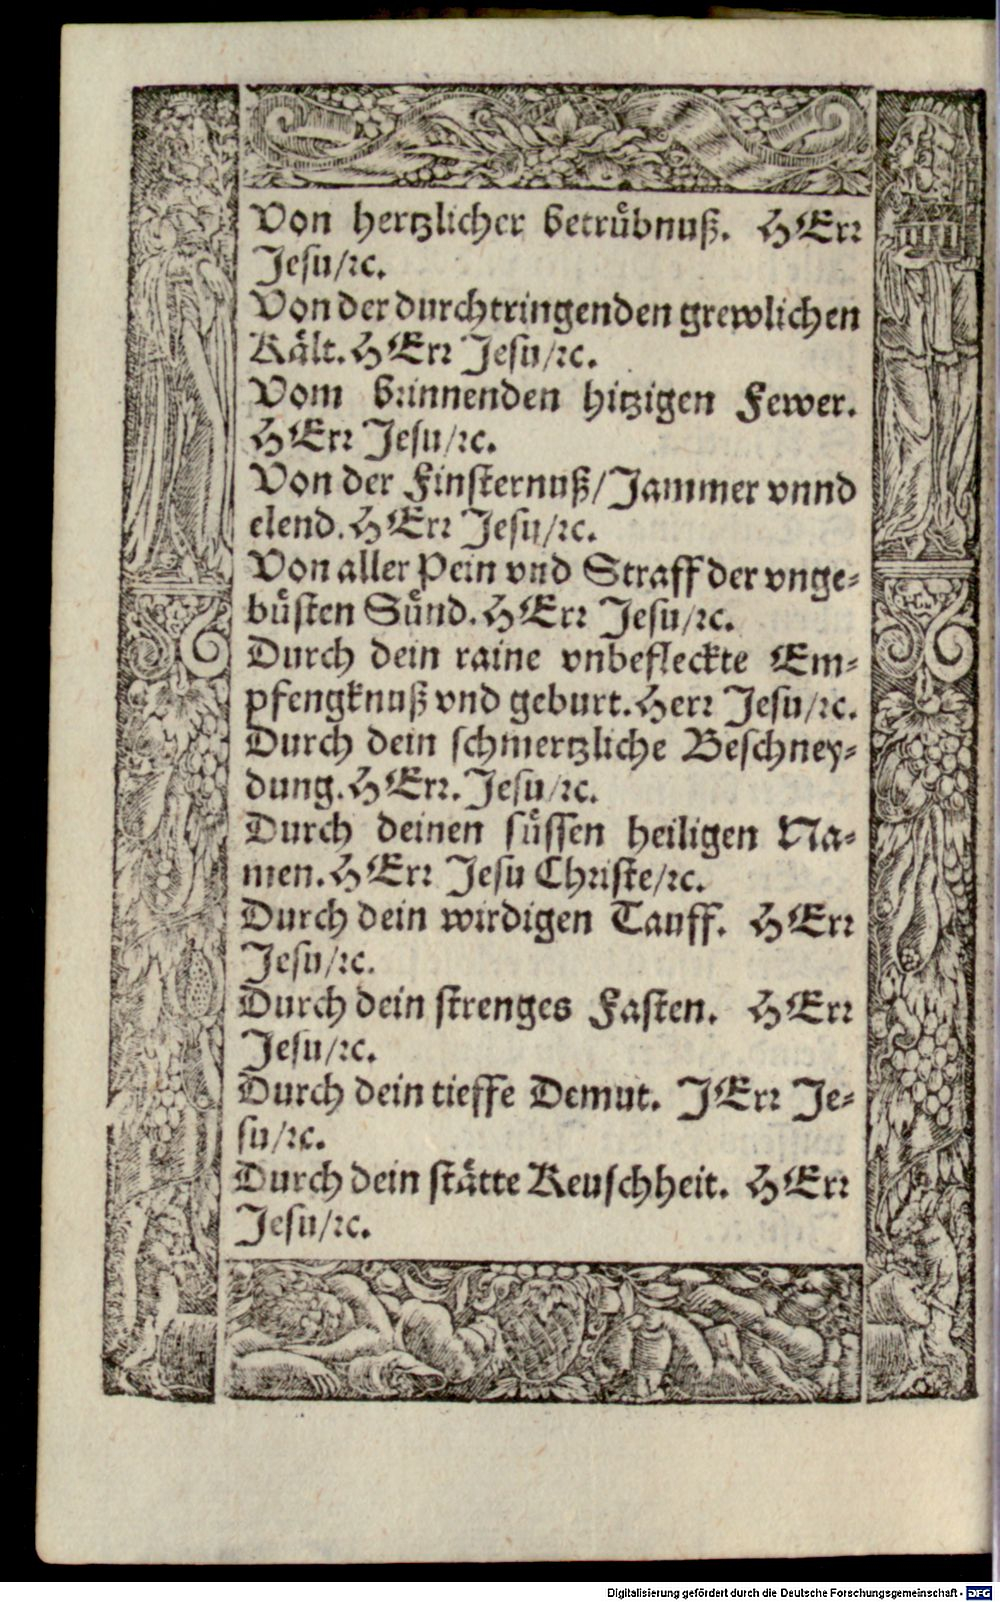 Von hertzlicher betrübnuß. HErr
Jesu/ꝛc.
Von der durchtringenden grewlichen
Kält. HErr Jesu/ꝛc.
Vom brinnenden hitzigen Fewer.
HErr Jesu/ꝛc.
Von der Finsternuß/Jammer vnnd
elend. HErr Jesu/ꝛc.
Von aller Pein vnd Straff der vnge-
büsten Sünd. HErr Jesu/ꝛc.
Durch dein raine vnbefleckte Em-
pfengknuß vnd geburt. Herr Jesu/ꝛc.
Durch dein schmertzliche Beschney-
dung. HErr. Jesu/ꝛc.
Durch deinen süssen heiligen Na-
men. HErr Jesu Christe/ꝛc.
Durch dein wirdigen Tauff. HErr
Jesu/ꝛc.
Durch dein strenges Fasten. HErr
Jesu/ꝛc.
Durch dein tieffe Demut. JErr Je-
su/ꝛc.
Durch dein stätte Keuschheit. HErr
Jesu/ꝛc.
Digitalisierung gefördert durch die Deutsche Forschungsgemeinschaft - DFG